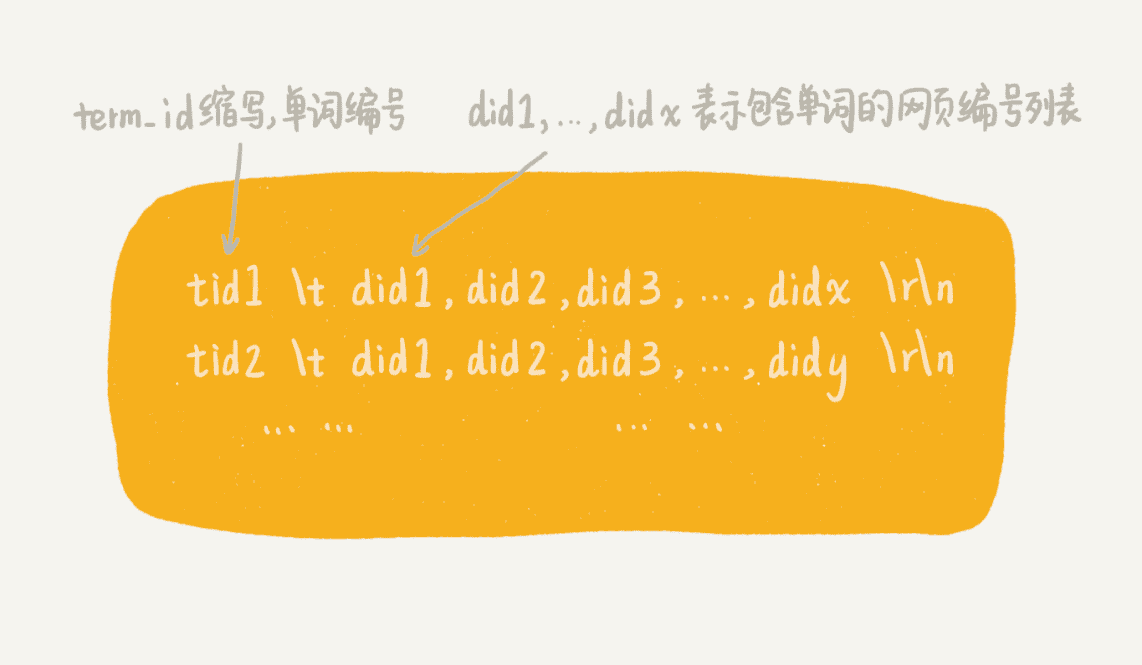 term_id缩写,单词编号
did1,...,didx 表示包含单词的网页编号列表
tid1 \t did1,did2,did3,...,didx \r\n
tid2 \t did1,did2,did3,...,didy \r\n
... ... ... ...